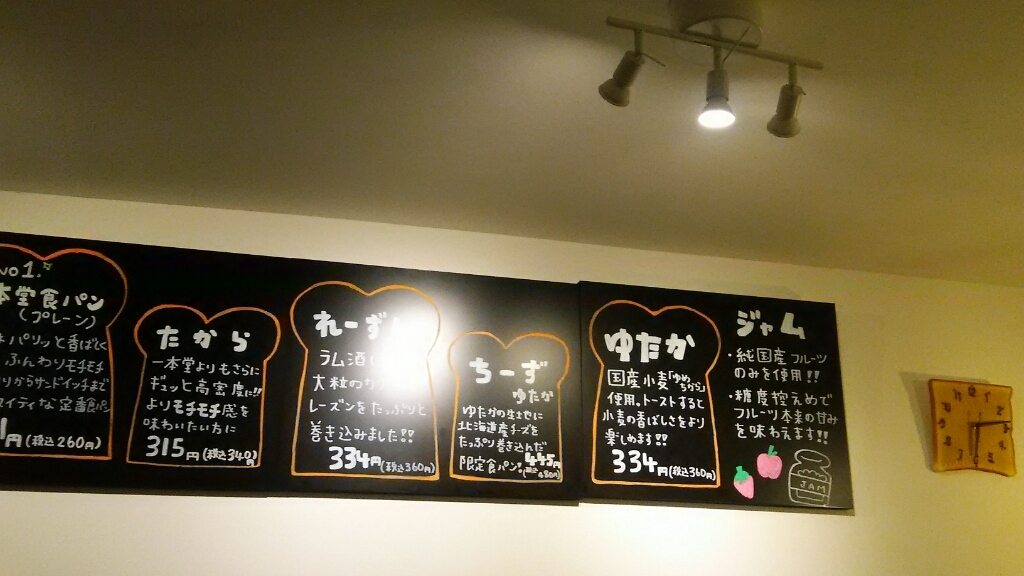 No1.
本堂食パン
(プレーン)
パリッと香ばしく
ふんわりモチモチ
からサンドイッチまで
イティな定番食パン
円(税込260円)
たから
一本堂よりもさらに
ギュッと高密度に!!
よりモチモチ感を
味わいたい方に
315円(税込340円)
れーず
ラム酒
大粒の
レーズンをたっぷりと
巻き込みました!!
334円(税込360円)
ちーず
ゆたか
ゆたかの生地に
北海道産チーズを
たっぷり巻き込んだ
限定食パン。445円
(税込480円)
ゆたか
国産小麦「ゆめちから」
使用。トーストすると
小麦の香ばしさをより
楽しめます!!
334円(税込360円)
ジャム
・純国産フルーツ
のみを使用!!
・糖度控えめで
フルーツ本来の甘み
を味わえます!!
JAM